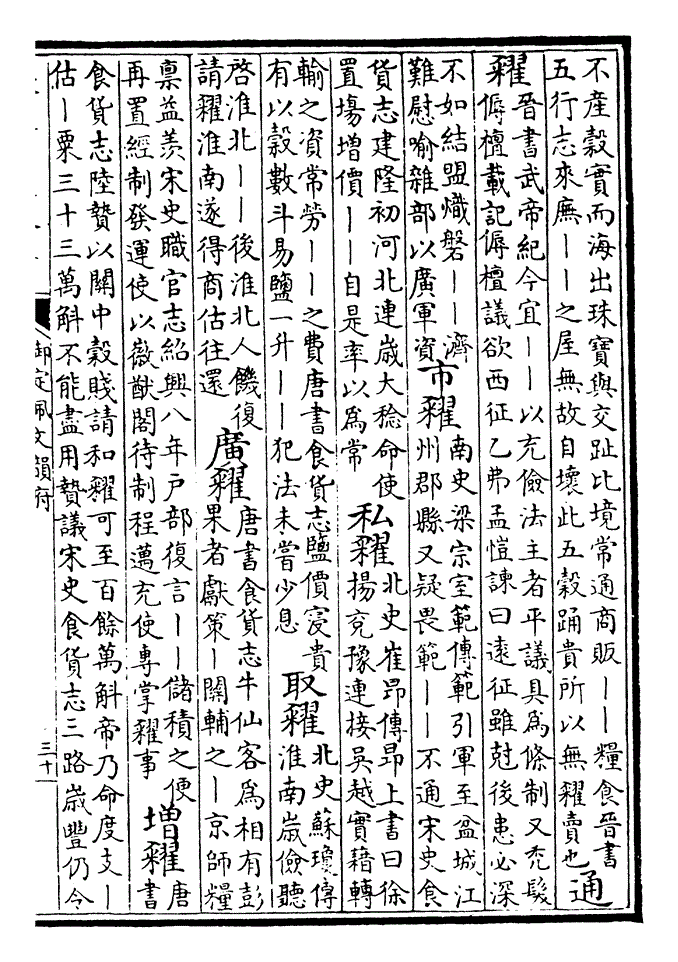 不產穀實而海出珠寶與交趾比境常通商販——糧食晉書
五行志來廡——之屋無故自壞此五穀踊貴所以無糴賣也
通糴
晉書武帝紀今宜——以充儉法主者平議具爲條制又禿髮
傉檀載記傉檀議欲西征乙弗孟愷諫曰遠征雖尅後患必深
不如結盟熾磐——濟
難慰喻雜部以廣軍資
市糴
南史梁宗室範傳範引軍至盆城江
州郡縣又疑畏範——不通宋史食
貨志建隆初河北連歲大稔命使
置塲增價——自是率以爲常
私糴
北史崔昂傳昂上書曰徐
揚兗豫連接吳越實藉轉
輸之資常勞——之費唐書食貨志鹽價寖貴
有以穀數斗易鹽一升——犯法未嘗少息
取糴
北史蘇瓊傳
淮南歲儉聽
啓淮北——後淮北人饑復
請糴淮南遂得商估往還
廣糴
唐書食貨志牛仙客爲相有彭
果者獻策—關輔之—京師糧
禀益羨宋史職官志紹興八年戶部復言——儲積之便
再置經制發運使以徽猷閣待制程邁充使專掌糴事
增糴
唐
書
食貨志陸贄以關中穀賤請和糴可至百餘萬斛帝乃命度支—
估—粟三十三萬斛不能盡用贄議宋史食貨志三路歲豐仍令
御定佩文韻府
三十